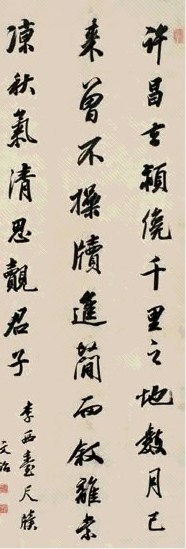 許昌去潁繞千里之地數月已
来曾不操牘進簡而叙離索
涼秋氣清思覿君子
李西臺尺牘
文治